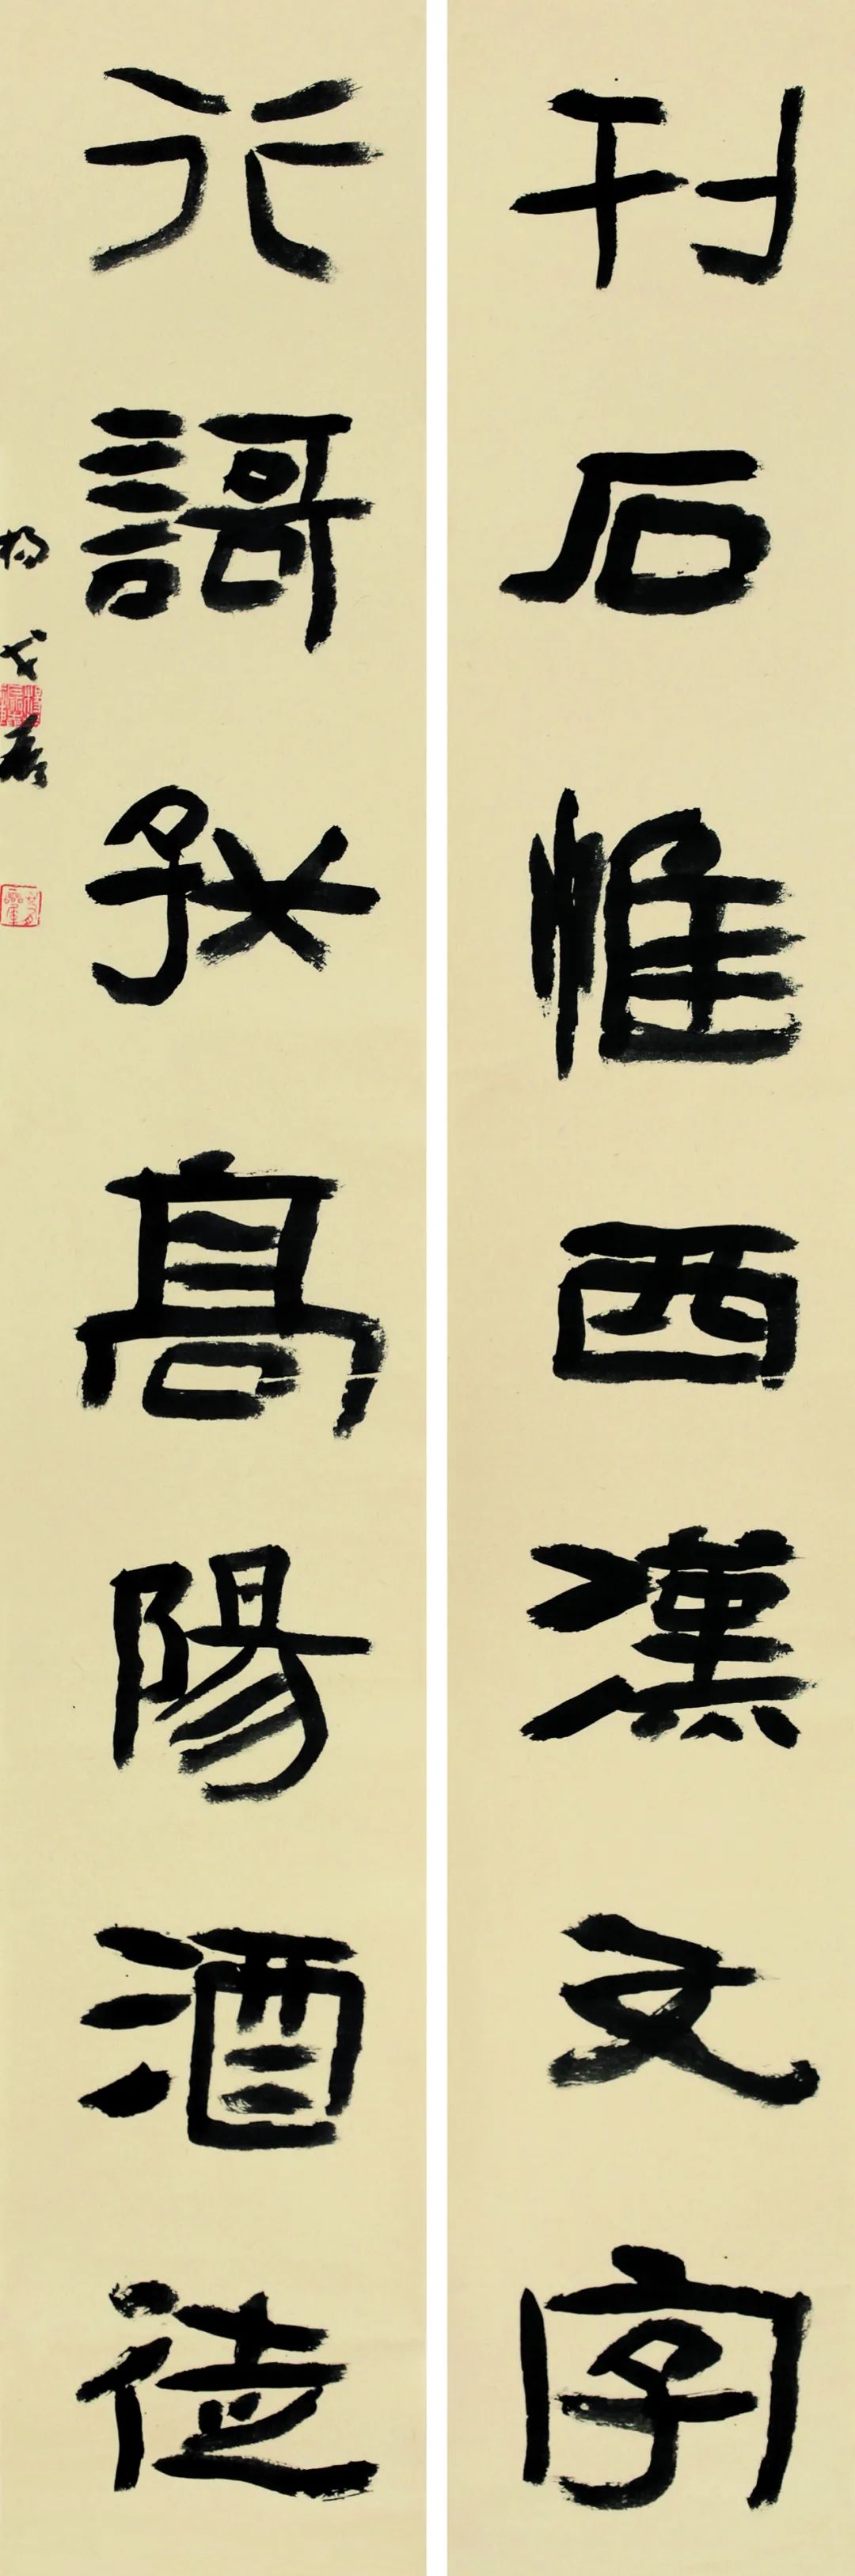 刊石惟西漢文字
行謌好高陽酒徒